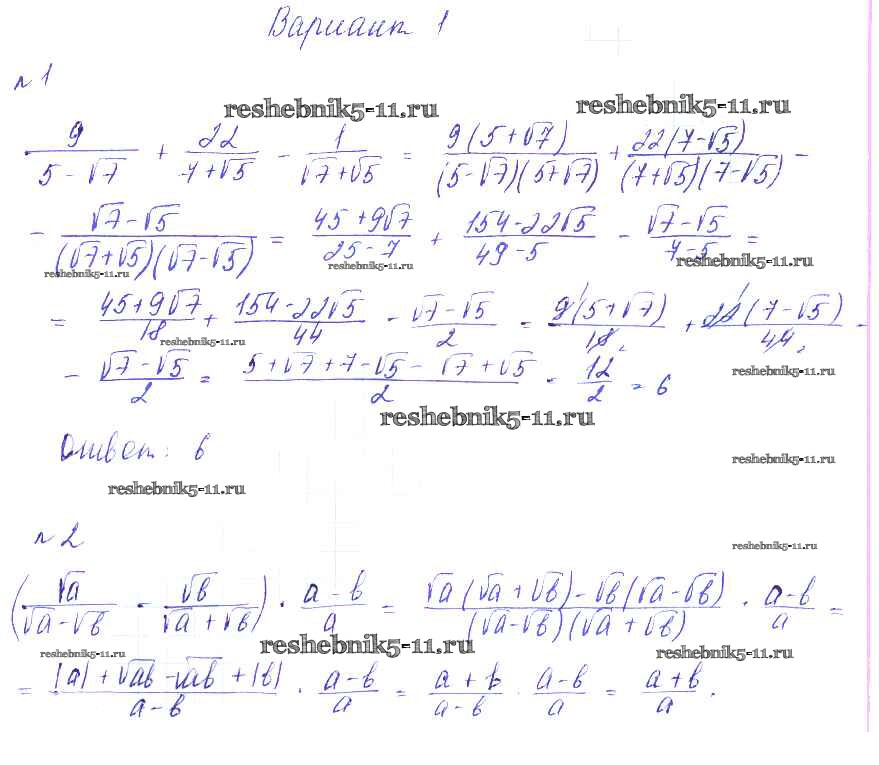 Вариант 1
№ 1
reshebnik5-11.ru reshebnik5-11.ru
9/(5-√7) + 22/(7+√5) - 1/(√7+√5) = 9(5+√7)/((5-√7)(5+√7)) + 22(7-√5)/((7+√5)(7-√5)) -
- (√7-√5)/((√7+√5)(√7-√5)) = (45+9√7)/(25-7) + (154-22√5)/(49-5) - (√7-√5)/(7-5) =
reshebnik5-11.ru reshebnik5-11.ru reshebnik5-11.ru
= (45+9√7)/18 + (154-22√5)/44 - (√7-√5)/2 = 9(5+√7)/18 + 22(7-√5)/44 -
reshebnik5-11.ru
- (√7-√5)/2 = (5+√7+7-√5-√7+√5)/2 = 12/2 = 6
reshebnik5-11.ru
reshebnik5-11.ru
Ответ: 6
reshebnik5-11.ru
reshebnik5-11.ru
№ 2
reshebnik5-11.ru
(√a/(√a-√b) - √b/(√a+√b)) · (a-b)/a = (√a(√a+√b)-√b(√a-√b))/((√a-√b)(√a+√b)) · (a-b)/a =
reshebnik5-11.ru reshebnik5-11.ru reshebnik5-11.ru
= (|a|+√ab-√ab+|b|)/(a-b) · (a-b)/a = (a+b)/(a-b) · (a-b)/a = (a+b)/a.